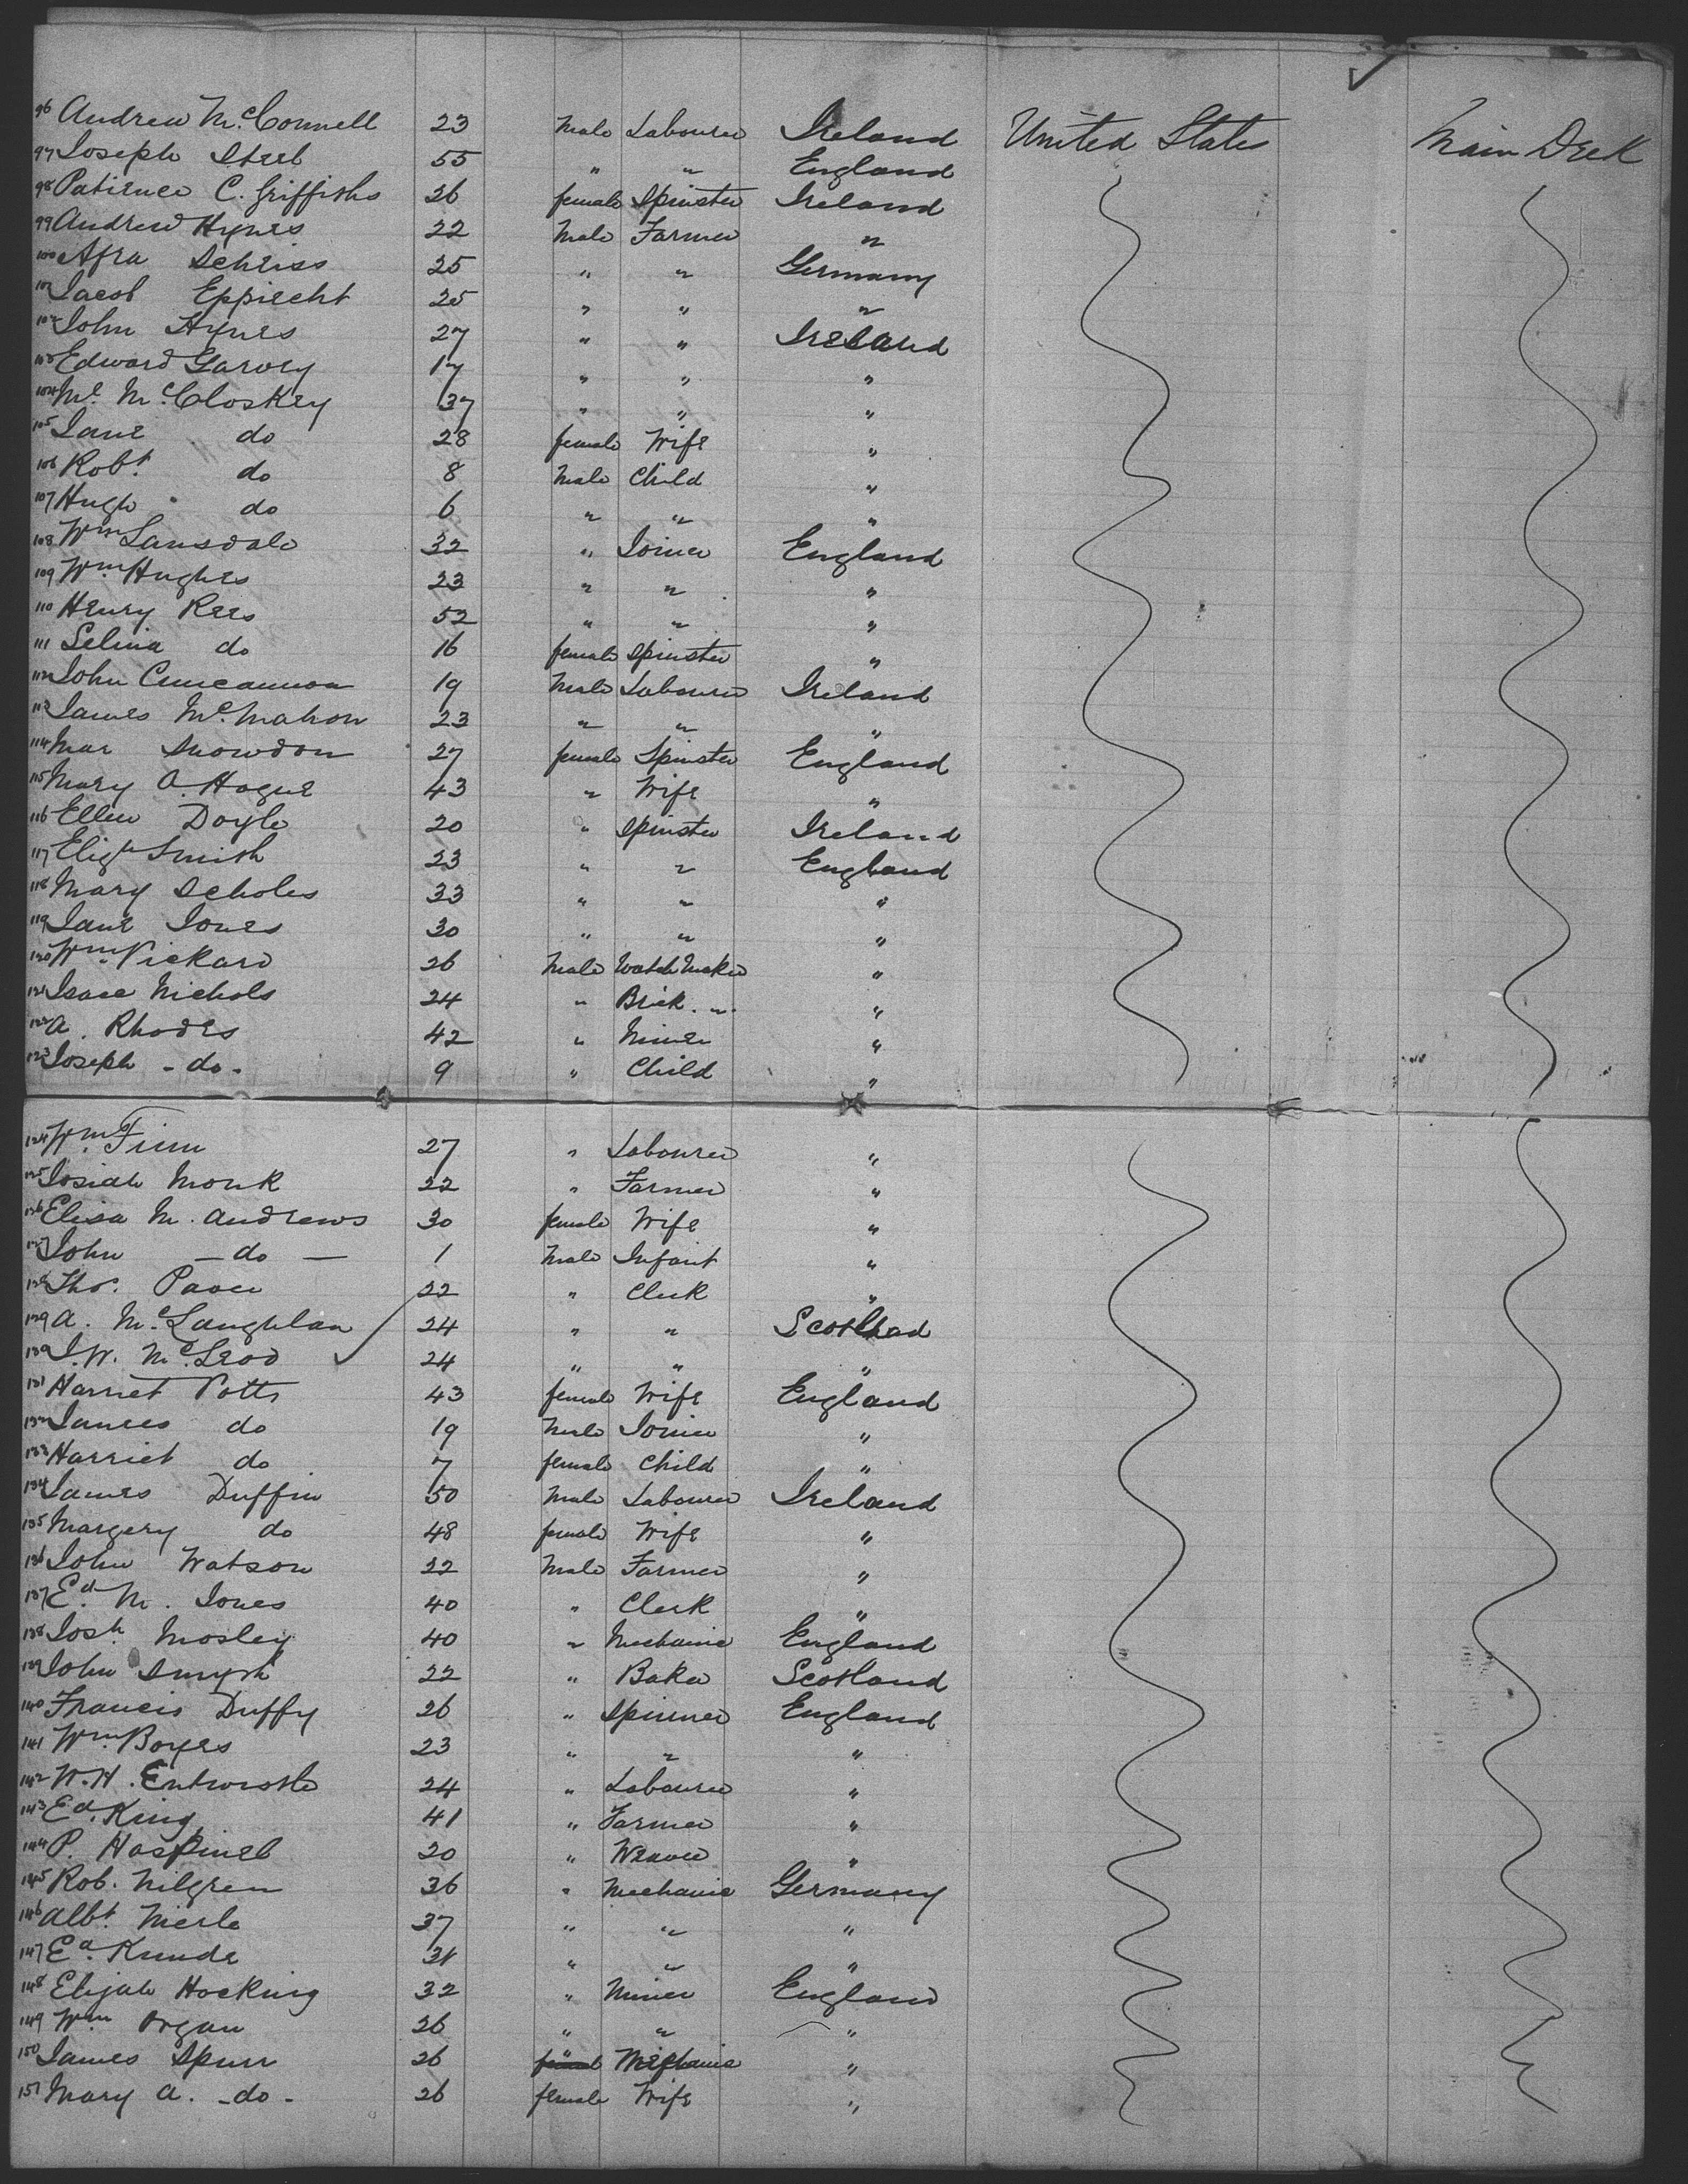 96 Andrew McConnell 23 Male Labourer Ireland United States Main Deck
97 Joseph Steel 55 " " England
98 Patience C. Griffiths 26 female Spinster Ireland
99 Andrew Hynes 22 Male Farmer "
100 Afra Schriss 25 " " Germany
101 Jacob Epprecht 25 " " "
102 John Hynes 27 " " Ireland
103 Edward Garvey 17 " " "
104 Ml. McCloskey 37 " " "
105 Jane do 28 female Wife "
106 Robt. do 8 Male Child "
107 Hugh do 6 " " "
108 Wm Lansdale 32 " Joiner England
109 Wm Hughes 23 " " "
110 Henry Rees 52 " " "
111 Selina do 16 female Spinster "
112 John Cuncannon 19 Male Labourer Ireland
113 James McMahon 23 " " "
114 Mar Snowdon 27 female Spinster England
115 Mary A. Hogue 43 " Wife "
116 Ellen Doyle 20 " Spinster Ireland
117 Elizth Smith 23 " " England
118 Mary Scholes 33 " " "
119 Jane Jones 30 " " "
120 Wm. Pickard 26 Male Watch Maker "
121 Isaac Nichols 24 " Brick " "
122 A. Rhodes 42 " Miner "
123 Joseph - do - 9 " Child "
124 Wm. Finn 27 " Labourer "
125 Josiah Monk 22 " Farmer "
126 Elisa M. Andrews 30 female Wife "
127 John - do - 1 Male Infant "
128 Thos. Paver 22 " Clerk "
129 A. McLaughlan 24 " " Scotland
130 J. W. McLeod 24 " " "
131 Harriet Potts 43 female Wife England
132 James do 19 Male Joiner "
133 Harriet do 7 female Child "
134 James Duffin 50 Male Labourer Ireland
135 Margery do 48 female Wife "
136 John Watson 22 Male Farmer "
137 Ed. M. Jones 40 " Clerk "
138 Josh. Mosley 40 " Mechanic England
139 John Smyth 22 " Baker Scotland
140 Francis Duffy 26 " Spinner England
141 Wm. Boyes 23 " " "
142 W. H. Entwistle 24 " Labourer "
143 Ed. King 41 " Farmer "
144 P. 20 " Weaver "
145 Rob. Nilgren 36 " Mechanic Germany
146 Albt. Merle 37 " " "
147 Ed. Kunde 31 " " "
148 Elijah Hocking 32 " Miner England
149 Wm Organ 26 " " "
150 James Spurr 26 " Mechanic "
151 Mary A. - do - 26 female Wife "